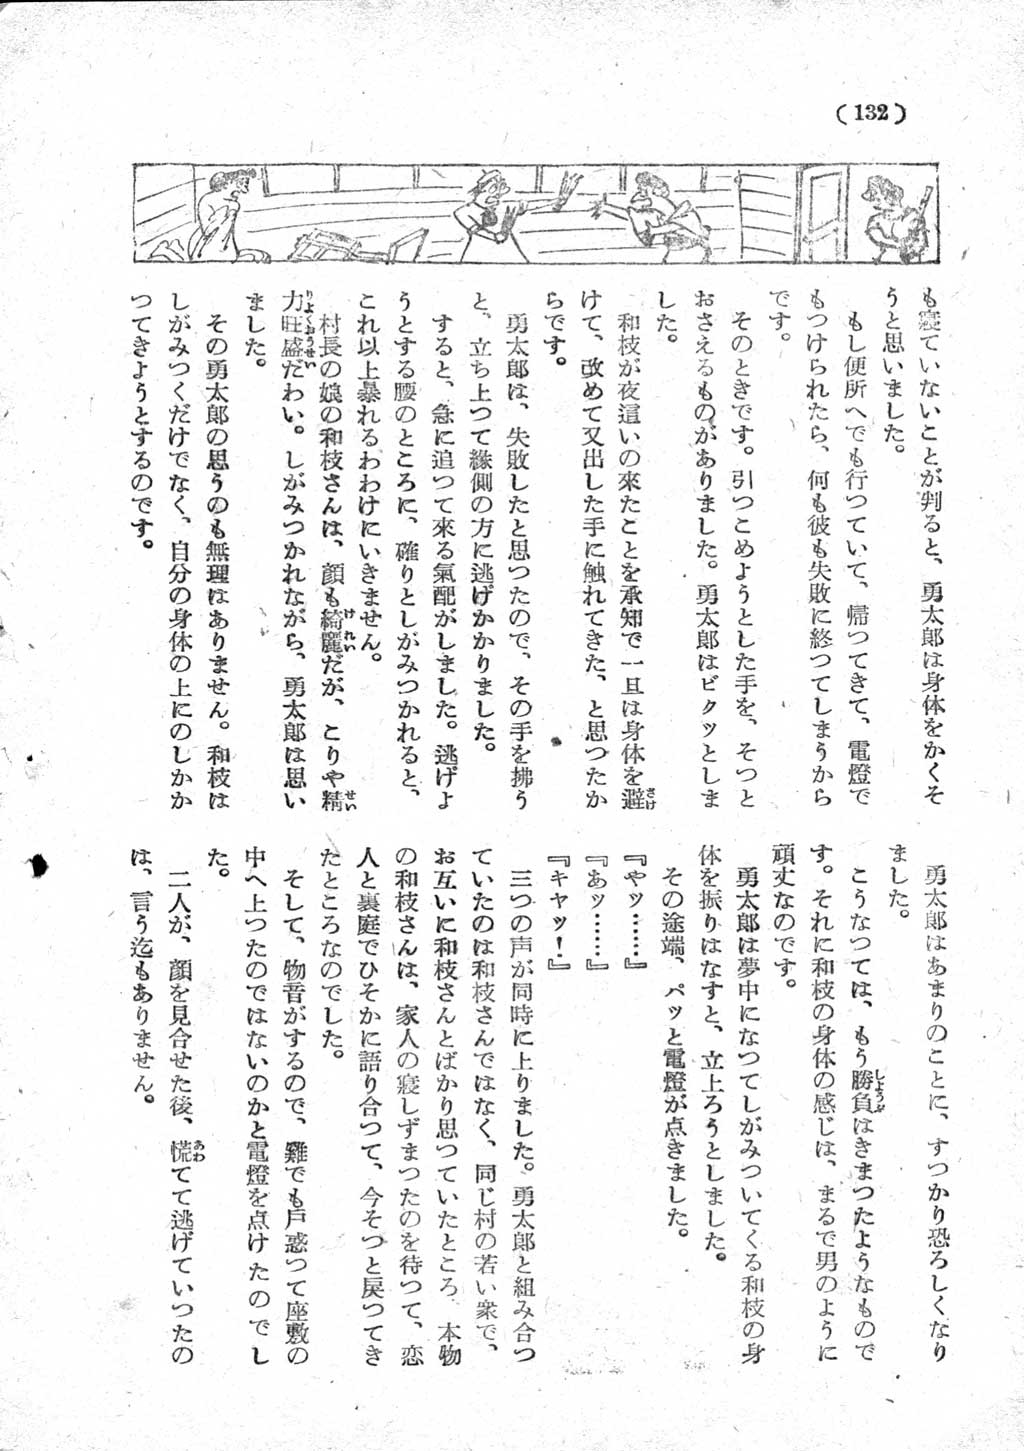 (132)
も寝ていないことが判ると、勇太郎は身体をかくそ
うと思いました。
もし便所へでも行つていて、帰つてきて、電燈で
もつけられたら、何も彼も失敗に終つてしまうから
です。
そのときです。引つこめようとした手を、そつと
おさえるものがありました。勇太郎はビクッとしま
した。
和枝が夜這いの来たことを承知で一旦は身体を避さけ
けて、改めて又出した手に触れてきた、と思つたか
らです。
勇太郎は、失敗したと思つたので、その手を拂う
と、立ち上つて緣側の方に逃げかかりました。
すると、急に追つて來る氣配がしました。逃げよ
うとする腰のところに、確りとしがみつかれると、
これ以上暴れるわわけにいきません。
村長の娘の和枝さんは、顔も綺麗けれいだが、こりや精せい
力旺盛りよくおうせいだわい。しがみつかれながら、勇太郎は思い
ました。
その勇太郎の思うのも無理はありません。和枝は
しがみつくだけでなく、自分の身体の上にのしかか
つてきようとするのです。
勇太郎はあまりのことに、すつかり恐ろしくなり
ました。
こうなつては、もう勝負しようぶはきまつたようなもので
す。それに和枝の身体の感じは、まるで男のように
頑丈なのです。
勇太郎は夢中になつてしがみついてくる和枝の身
体を振りはなすと、立上ろうとしました。
その途端、パッと電燈が点きました。
『やッ……』
『あッ……』
『キャッ！』
三つの声が同時に上りました。勇太郎と組み合つ
ていたのは和枝さんではなく、同じ村の若い衆で、
お互いに和枝さんとばかり思つていたところ、本物
の和枝さんは、家人の寝しずまつたのを待つて、恋
人と裏庭でひそかに語り合つて、今そつと戻つてき
たところなのでした。
そして、物音がするので、難でも戸惑つて座敷の
中へ上つたのではないのかと電燈を点けたのでし
た。
二人が、顔を見合せた後、慌あわてて逃げていつたの
は、言う迄もありません。